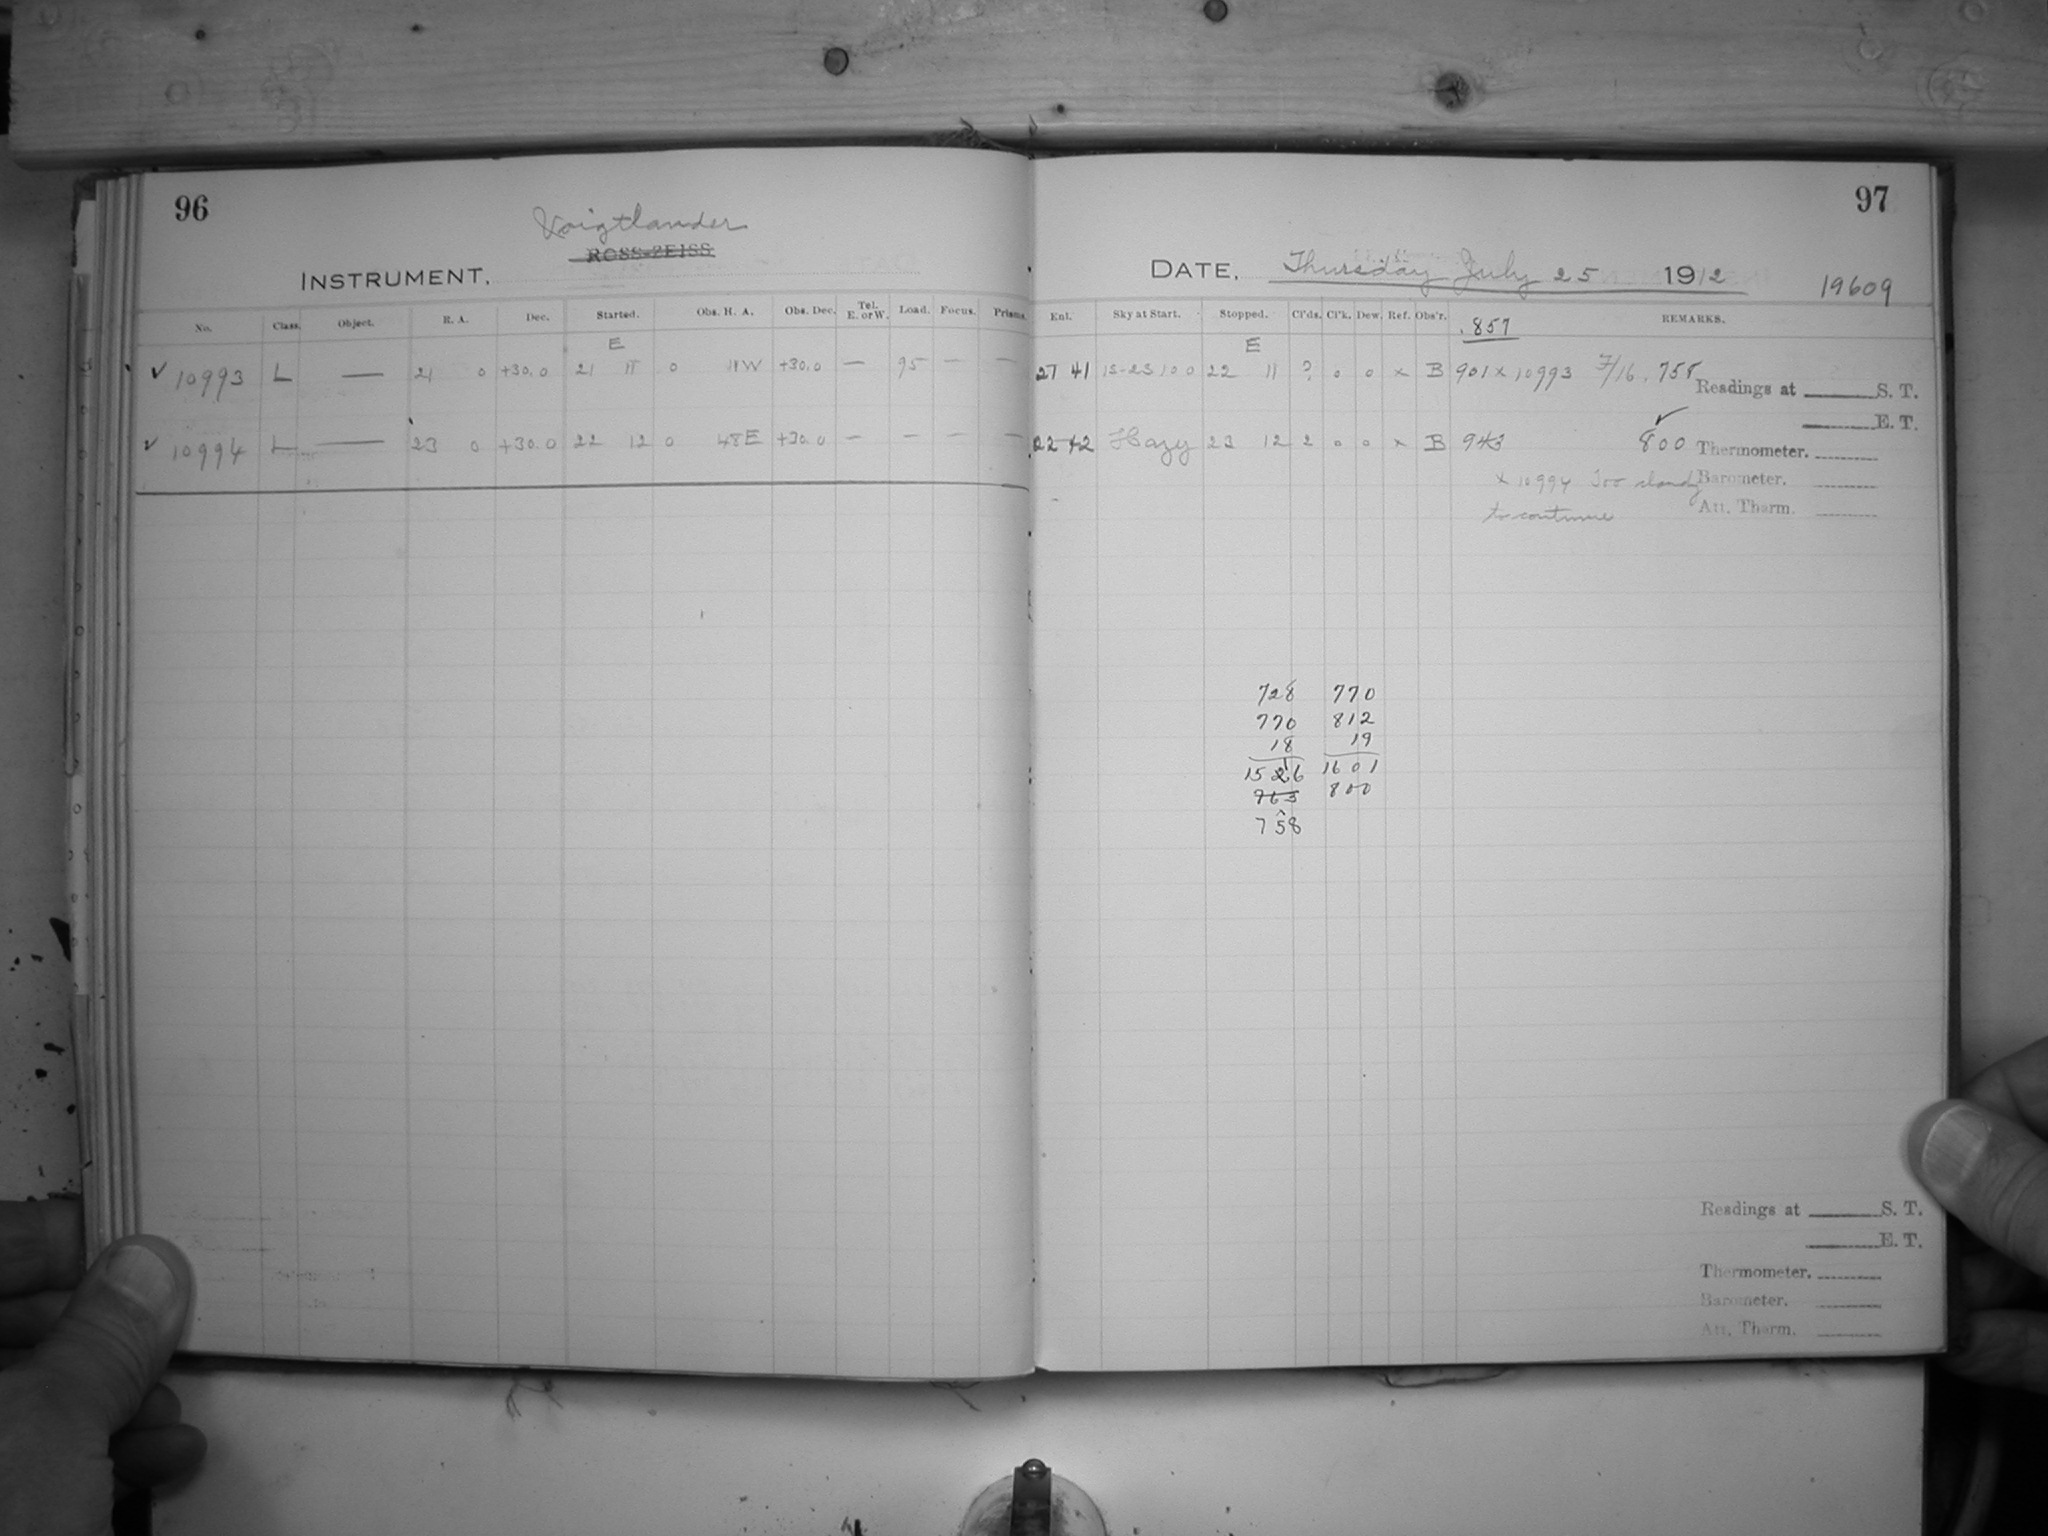 96
Voigtlander
ROSS-ZEISS
INSTRUMENT,
No. Class. Object. R. A. Dec. Started. Obs. H. A. Obs. Dec. Tel. E. or W. Load. Focus. Prisms.
E
✓ 10993 L — 21 0 +30.0 21 11 0 11W +30.0 — 95 — —
✓ 10994 L — 23 0 +30.0 22 12 0 48E +30.0 — — — —
97
DATE, Thursday July 25 1912
19609
Enl. Sky at Start. Stopped. Cl'ds. Cl'k. Dew. Ref. Obs'r. .857 REMARKS.
E
27 41 15-25 100 22 11 ? 0 0 x B 901 x 10993 7/16 .758
Readings at S. T.
E. T.
22 42 Hazy 23 12 2 0 0 x B 943 800 ✓
Thermometer.
x 10994 Too cloudy
Barometer.
to continue
Att. Tharm.
728 770
770 812
18 19
1526 1601
763 800
758
Readings at S. T.
E. T.
Thermometer.
Barometer.
Att. Tharm.